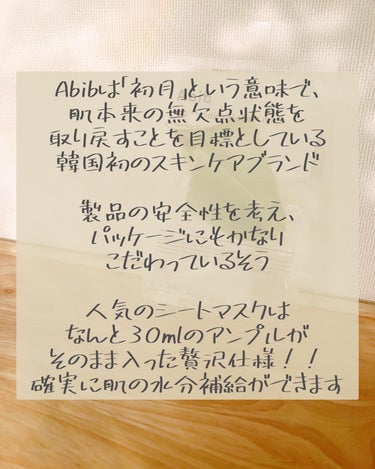 Abibは「初月」という意味で、
肌本来の無欠点状態を
取り戻すことを目標としている
韓国初のスキンケアブランド
製品の安全性を考え、
パッケージにもかなり
こだわっているそう
人気のシートマスクは
なんと30mlのアンプルが
そのまま入った贅沢仕様！！
確実に肌の水分補給ができます